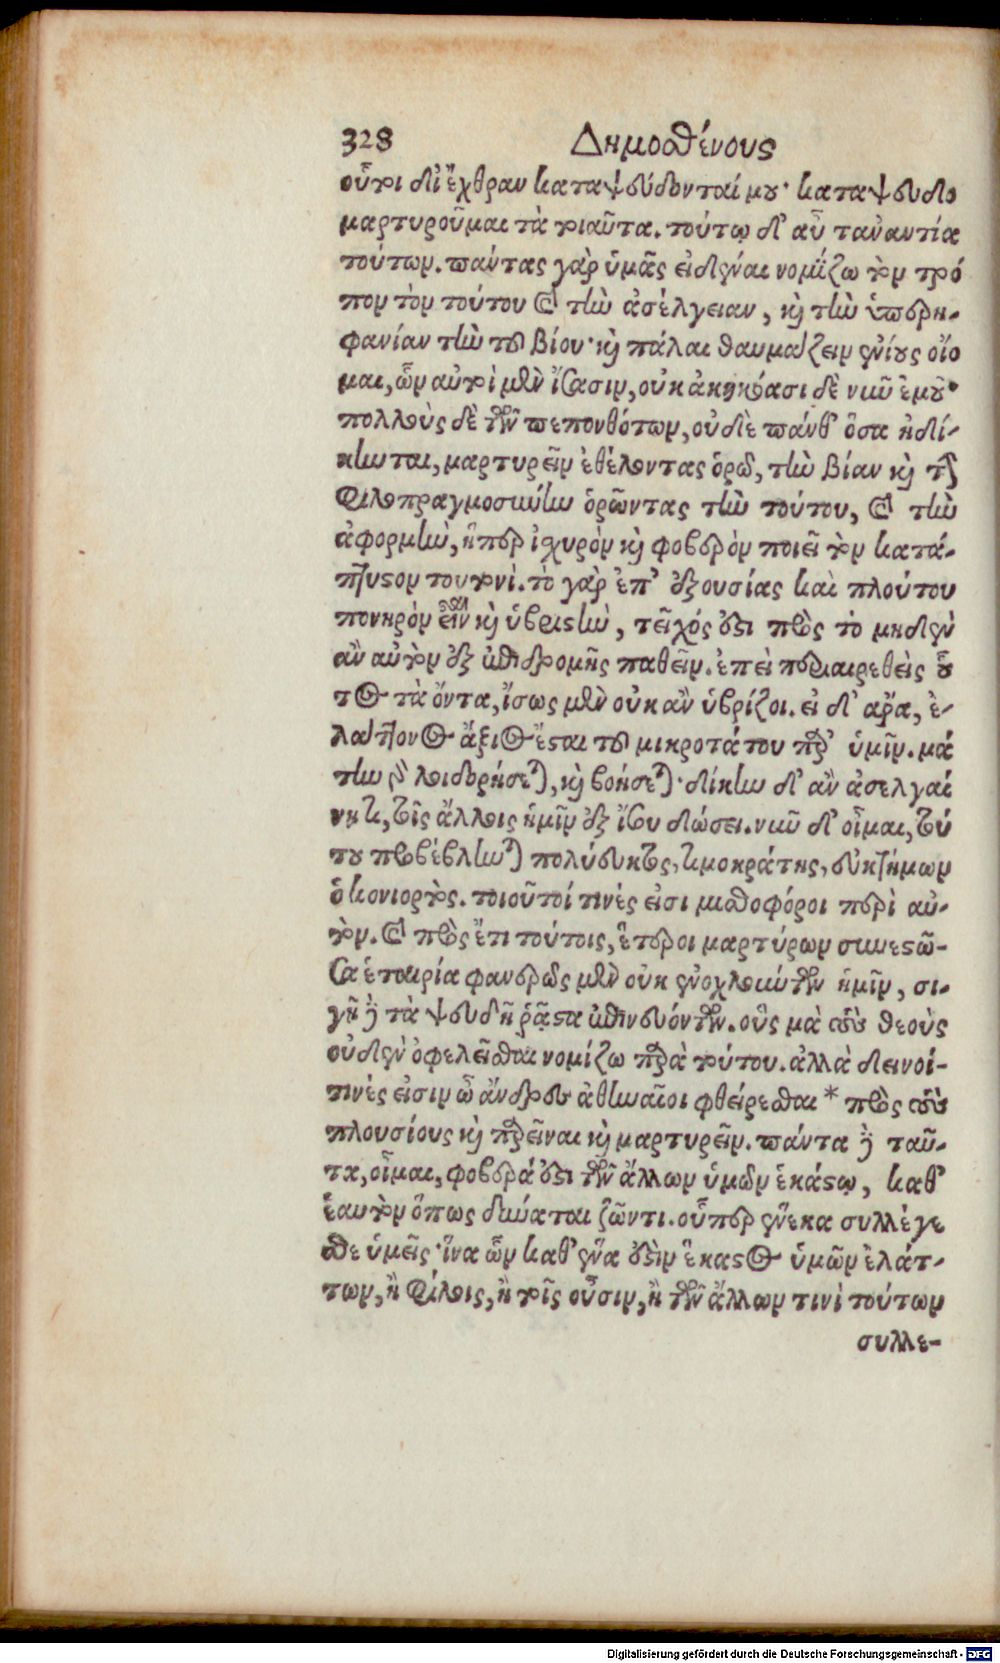 328 Δημοσθένους
οὗτοι δι' ἔχθραν καταψεύδονταί μου· καταψευδο
μαρτυροῦμαι τὰ τοιαῦτα. τούτῳ δ' αὖ τἀναντία
τούτων. πάντας γὰρ ὑμᾶς εἰδέναι νομίζω τὸν τρό
πον τὸν τούτου καὶ τὴν ἀσέλγειαν, καὶ τὴν ὑπερη-
φανίαν τὴν τοῦ βίου· καὶ πάλαι θαυμάζειν ἐνίους οἴο
μαι, ὧν αὐτοὶ μὲν ἴσασιν, οὐκ ἀκηκόασι δὲ νῦν ἐμοῦ·
πολλοὺς δὲ τῶν πεπονθότων, οὐδὲ πάνθ' ὅσα ἠδί-
κηνται, μαρτυρεῖν ἐθέλοντας ὁρῶ, τὴν βίαν καὶ τὴν
φιλοπραγμοσύνην ὁρῶντας τὴν τούτου, καὶ τὴν
ἀφορμὴν, ἥπερ ἰσχυρὸν καὶ φοβερὸν ποιεῖ τὸν κατά-
πτυστον τουτονί. τὸ γὰρ ἐπ' ἐξουσίας καὶ πλούτου
πονηρὸν εἶναι καὶ ὑβριστὴν, τεῖχός ἐστι πρὸς τὸ μηδὲν
ἂν αὐτὸν ἐξ ἐπιδρομῆς παθεῖν. ἐπεὶ περιαιρεθεὶς οὗ
τος τὰ ὄντα, ἴσως μὲν οὐκ ἂν ὑβρίζοι. εἰ δ' ἄρα, ἐ-
λάττονος ἄξιος ἔσται τοῦ μικροτάτου παρ' ὑμῖν. μά
την γὰρ λοιδορήσεται, καὶ βοήσεται· δίκην δ' ἂν ἀσελγαί
νῃ τι, τοῖς ἄλλοις ἡμῖν ἐξ ἴσου δώσει. νῦν δ' οἶμαι, τού
του προβέβληται πολύευκτος, τιμοκράτης, εὐκτήμων
ὁ κονιορτός. τοιοῦτοί τινές εἰσι μισθοφόροι περὶ αὐ-
τόν. καὶ πρὸς ἔτι τούτοις, ἕτεροι μαρτύρων συνεστῶ-
σα ἑταιρία φανερῶς μὲν οὐκ ἐνοχλούντων ἡμῖν, σι-
γῇ δὲ τὰ ψευδῆ ῥᾷστα ἐπινευόντων. οὓς μὰ τοὺς θεοὺς
οὐδὲν ὀφελεῖσθαι νομίζω παρὰ τούτου. ἀλλὰ δεινοί-
τινές εἰσιν ὦ ἄνδρες ἀθηναῖοι φθείρεσθαι * πρὸς τοὺς
πλουσίους καὶ παρεῖναι καὶ μαρτυρεῖν. πάντα δὲ ταῦ-
τα, οἶμαι, φοβερά ἐστι τῶν ἄλλων ὑμῶν ἑκάστῳ, καθ'
ἑαυτὸν ὅπως δύναται ζῶντι. οὗπερ ἕνεκα συλλέγε
σθε ὑμεῖς· ἵνα ὧν καθ' ἕνα ἐστὶν ἕκαστος ὑμῶν ἐλάτ-
των, ἢ φίλοις, ἢ τοῖς οὖσιν, ἢ τῶν ἄλλων τινὶ τούτων
συλλε-
Digitalisierung gefördert durch die Deutsche Forschungsgemeinschaft - DFG